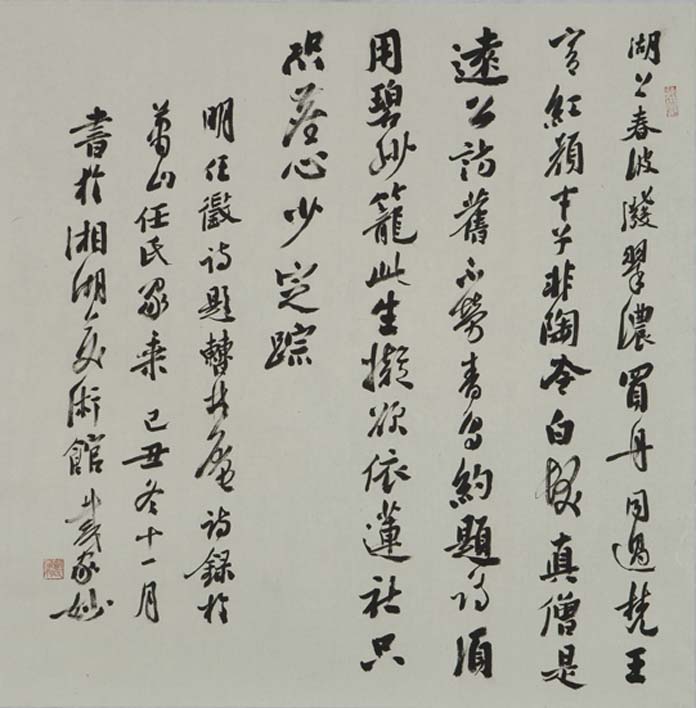 湖上春波潑翠濃買舟同過梵王
宮紅顏才子非陶令白髮真僧是
遠公訪舊不勞青鳥約題詩須
用碧紗籠此生擬欲依蓮社只
恐塵心少定踪
明任詩題轉庵詩録於
蕭山任氏家乘己丑冬十一月
書於湘湖美術館戴家妙